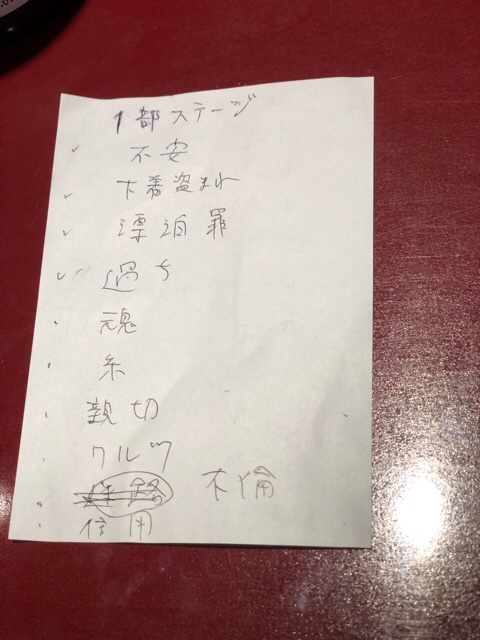 1部ステージ
不安
下着盗まれ
漂泊罪
過ち
魂
糸
親切
クルツ
不倫
信用